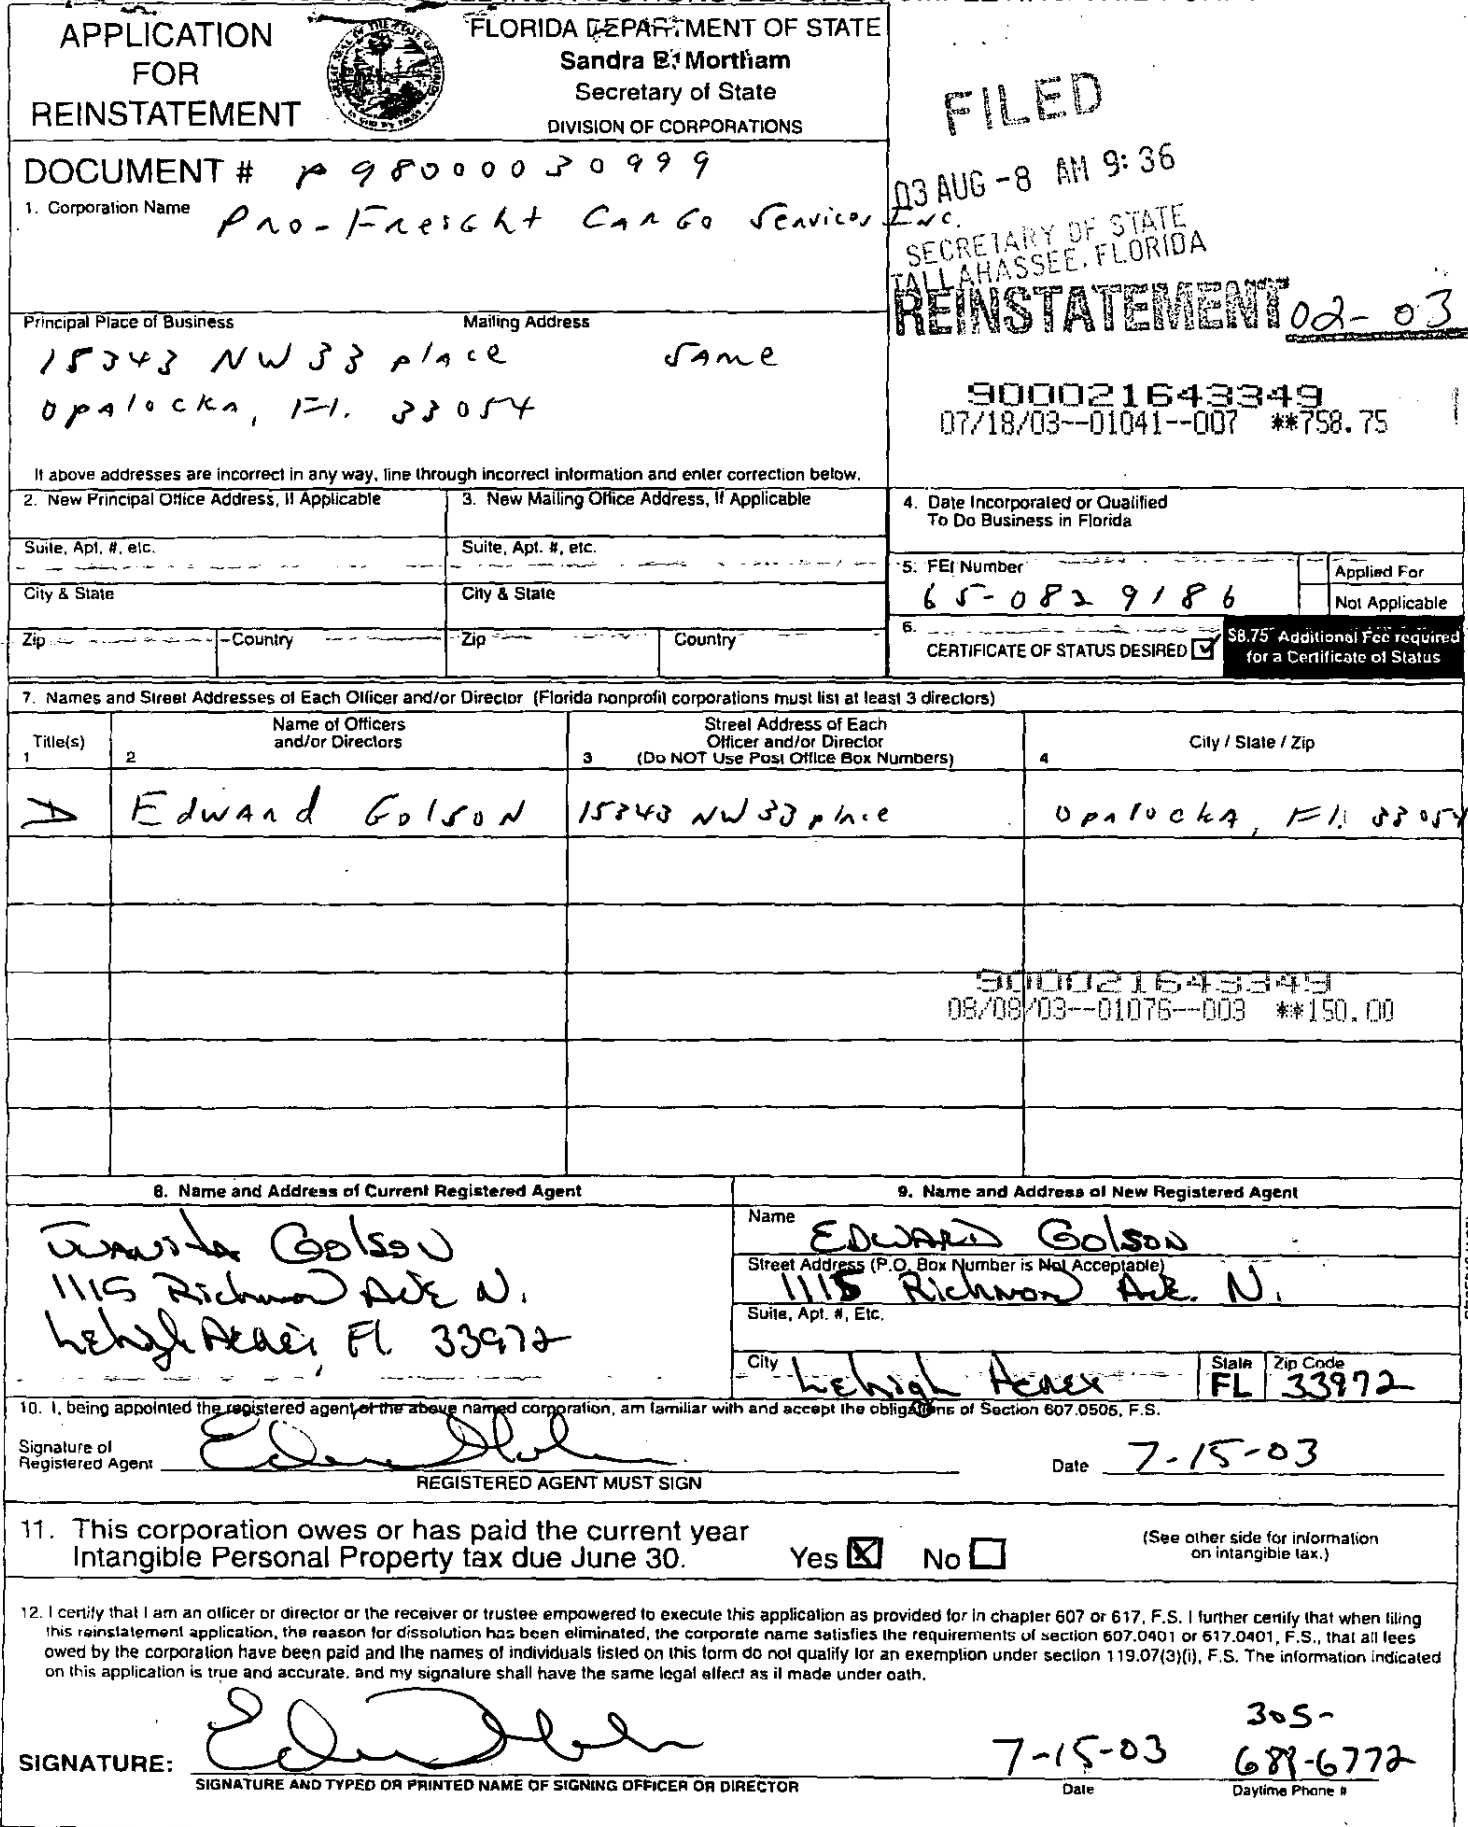 APPLICATION
FOR
REINSTATEMENT
FLORIDA DEPARTMENT OF STATE
Sandra B. Mortham
Secretary of State
DIVISION OF CORPORATIONS
FILED
03 AUG -8 AM 9:36
SECRETARY OF STATE
TALLAHASSEE, FLORIDA
REINSTATEMENT 02-03
DOCUMENT # P98000030999
1. Corporation Name Pro-Freight Cargo Services Inc.
Principal Place of Business
Mailing Address
15343 NW 33 place
Same
Opalocka, Fl. 33054
900021643349
07/18/03--01041--007 **758.75
If above addresses are incorrect in any way, line through incorrect information and enter correction below.
2. New Principal Office Address, If Applicable
3. New Mailing Office Address, If Applicable
4. Date Incorporated or Qualified
To Do Business in Florida
Suite, Apt. #, etc.
Suite, Apt. #, etc.
5. FEI Number
65-0829186
Applied For
Not Applicable
City & State
City & State
Zip
Country
Zip
Country
6.
CERTIFICATE OF STATUS DESIRED
$8.75 Additional Fee required
for a Certificate of Status
7. Names and Street Addresses of Each Officer and/or Director (Florida nonprofit corporations must list at least 3 directors)
Title(s)
1
Name of Officers
and/or Directors
2
Street Address of Each
Officer and/or Director
3 (Do NOT Use Post Office Box Numbers)
City / State / Zip
4
D Edward Golson 15343 NW 33 place Opalocka, Fl. 33054
900021643349
08/08/03--01076--003 **150.00
8. Name and Address of Current Registered Agent
Juanita Golson
1115 Richmon Ave N.
Lehigh Acres, Fl 33972
9. Name and Address of New Registered Agent
Name
EDWARD Golson
Street Address (P.O. Box Number is Not Acceptable)
1115 Richmon Ave. N.
Suite, Apt. #, Etc.
City Lehigh Acres
State
FL
Zip Code
33972
10. I, being appointed the registered agent of the above named corporation, am familiar with and accept the obligations of Section 607.0505, F.S.
Signature of
Registered Agent
Date 7-15-03
REGISTERED AGENT MUST SIGN
11. This corporation owes or has paid the current year
Intangible Personal Property tax due June 30.
Yes X No
(See other side for information
on intangible tax.)
12. I certify that I am an officer or director or the receiver or trustee empowered to execute this application as provided for in chapter 607 or 617, F.S. I further certify that when filing
this reinstatement application, the reason for dissolution has been eliminated, the corporate name satisfies the requirements of section 607.0401 or 617.0401, F.S., that all fees
owed by the corporation have been paid and the names of individuals listed on this form do not qualify for an exemption under section 119.07(3)(i), F.S. The information indicated
on this application is true and accurate, and my signature shall have the same legal effect as if made under oath.
SIGNATURE:
SIGNATURE AND TYPED OR PRINTED NAME OF SIGNING OFFICER OR DIRECTOR
7-15-03
Date
305-
688-6772
Daytime Phone #